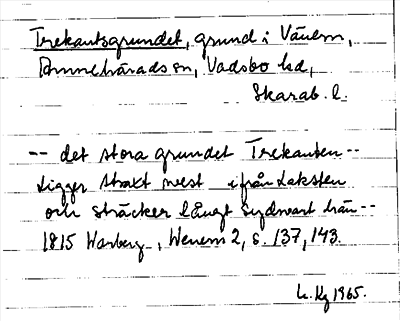 Trekantsgrundet, grund i Vänern,
Amnehärads sn, Vadsbo hd,
Skarab. l.
-- det stora grundet Trekanten --
ligger straxt west ifrån Laksten
och sträcker långt Sydwart här --
1815 Warberg, Wenern 2, s. 137, 143.
1965.